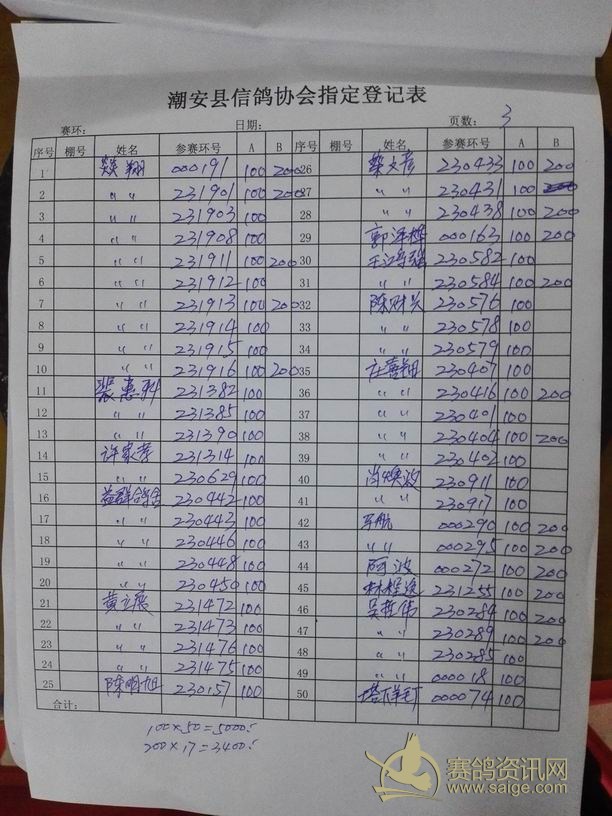 潮安县信鸽协会指定登记表
赛环: 日期: 页数: 3
序号 棚号 姓名 参赛环号 A B 序号 棚号 姓名 参赛环号 A B
1 翔 000191 100 200 26 黎文彦 230433 100 200
2 〃 〃 231901 100 200 27 〃 〃 230431 100
3 〃 〃 231903 100 28 〃 〃 230438 100 200
4 〃 〃 231908 100 29 郭泽桦 000163 100 200
5 〃 〃 231911 100 200 30 230582 100
6 〃 〃 231912 100 31 〃 〃 230584 100 200
7 〃 〃 231913 100 200 32 陈财兴 230576 100
8 〃 〃 231914 100 33 〃 〃 230578 100
9 〃 〃 231915 100 34 〃 〃 230579 100
10 〃 〃 231916 100 200 35 庄喜翔 230407 100
11 裴惠科 231382 100 36 〃 〃 230416 100 200
12 〃 〃 231385 100 37 〃 〃 230401 100
13 〃 〃 231390 100 38 〃 〃 230404 100 200
14 许家孝 231314 100 39 〃 〃 230402 100
15 〃 〃 230629 100 40 肖焕波 230911 100
16 益群鸽舍 230442 100 41 〃 〃 230917 100
17 〃 〃 230443 100 42 军航 000290 100 200
18 〃 〃 230446 100 43 〃 〃 000295 100 200
19 〃 〃 230448 100 44 阿波 000272 100 200
20 〃 〃 230450 100 45 林程逵 231255 100 200
21 黄立展 231472 100 46 吴哲伟 230284 100 200
22 〃 〃 231473 100 47 〃 〃 230289 100 200
23 〃 〃 231476 100 48 〃 〃 230285 100
24 〃 〃 231475 100 49 〃 〃 000018 100
25 陈明旭 230157 100 50 塔下羊钉 000074 100
合计:
100×50=5000
200×17=3400
赛鸽资讯网
www.saige.com